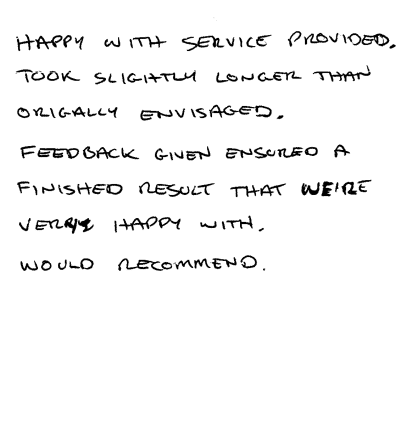 HAPPY WITH SERVICE PROVIDED.
TOOK SLIGHTLY LONGER THAN
ORIGALLY ENVISAGED.
FEEDBACK GIVEN ENSURED A
FINISHED RESULT THAT WE'RE
VERY HAPPY WITH.
WOULD RECOMMEND.